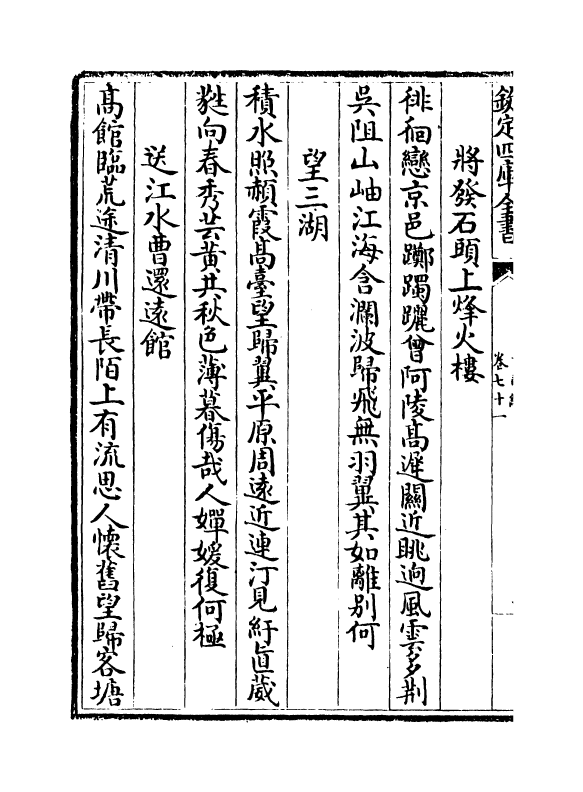 欽定四庫全書
卷七十一
將發石頭上烽火樓
徘徊戀京邑躑躅躧曾阿陵髙遲闕近眺迥風雲多荆
吳阻山岫江海含瀾波歸飛無羽翼其如離别何
望三湖
積水照赬霞髙臺望歸翼平原周遠近連汀見紆直葳
蕤向春秀芸黄共秋色薄暮傷哉人嬋媛復何極
送江水曹還遠館
髙館臨荒途清川帶長陌上有流思人懷舊望歸客塘